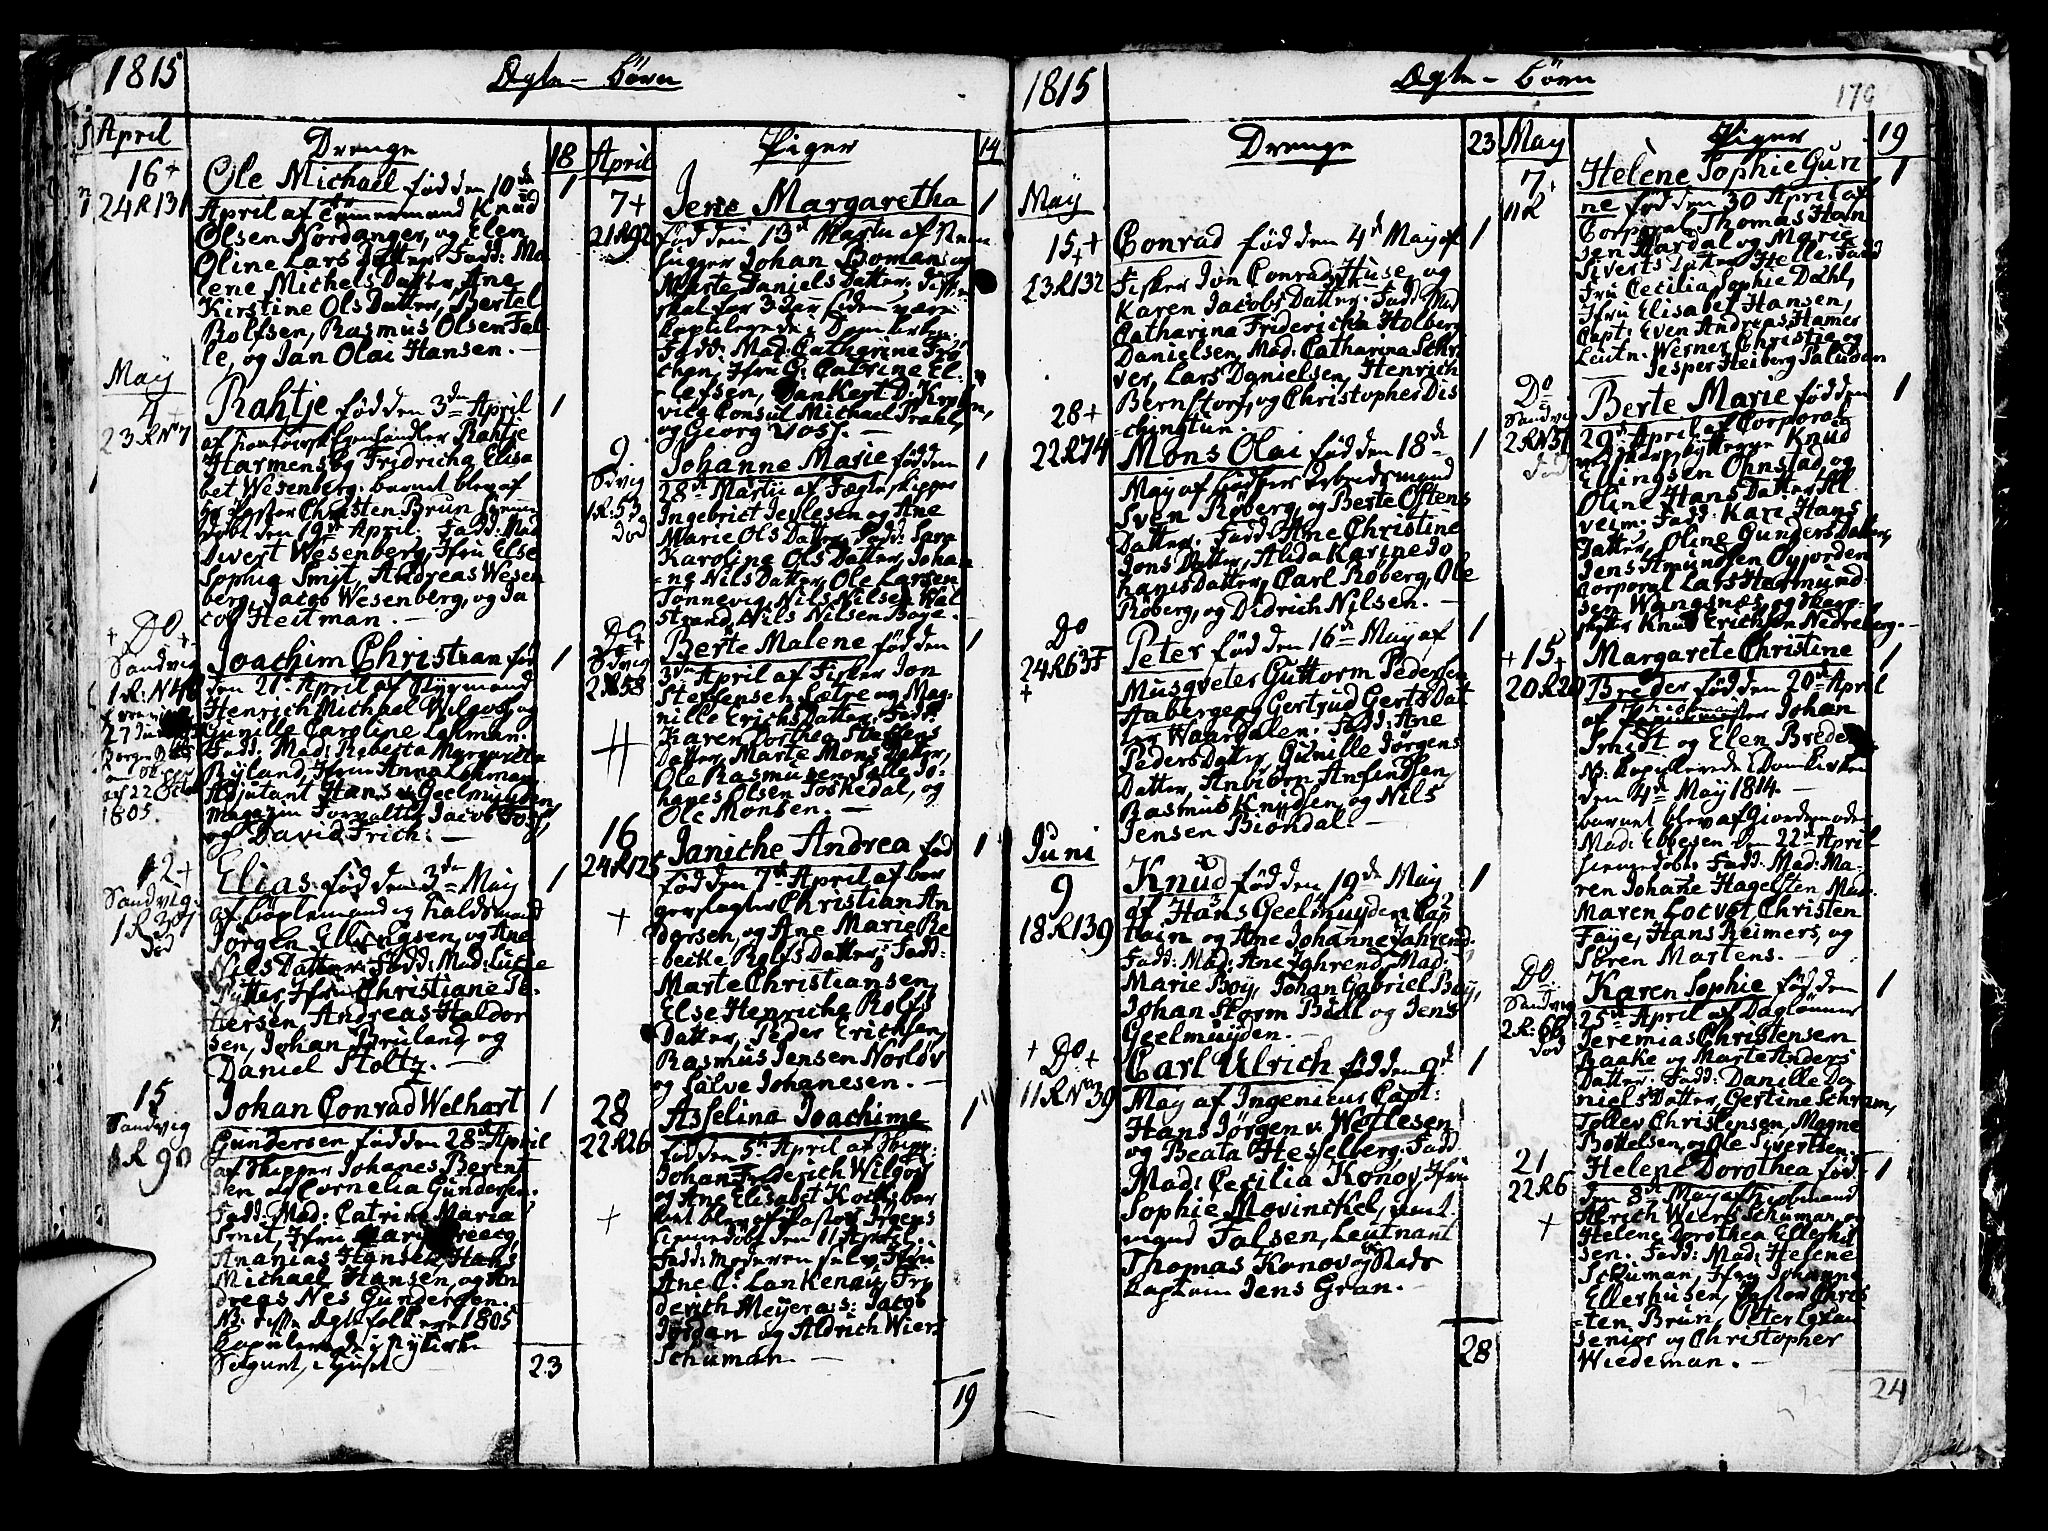 1815
Ægte-børn
April
Drenge
18
16+
24R131
Ole Michael fød den 10de
1
April af Tømmermand Knud
Olsen Nordanger, og Elen
Oline Lars Datter. Fadd: Ma
lene Michels Datter, Ane
Kirstine Ols Datter, Bertel
Rolfsen, Rasmus Olsen Fal
le, og Jan Olai Hansen.
May
4
23RN7
Rahtje fød den 3de April
1
af Rahtje
Harmens og Fridricha Elisa
bet Wesenberg: barnet blev af
Hr Pastor Christen Brun hiemme
døbt den 19de April. Fadd: Mad
Sivert Wesenberg, Jfru Else
Sophia Smit, Andreas Wesen
berg, Jacob Wesenberg, og Ja
cob Heitman.
+ Do +
Sandvig
1R:N48
27
1805.
Joachim Christian fød
1
den 21de April af Styrmand
Henrich Michael Wilgohs og
Gunille Caroline Lehman.
Fadd: Mad: Roberta Margaretha
Ryland, Jfru Anna Lehman,
Adjutant Hans v Geelmuyden,
Magazin Forvalter Jacob
og David Frich.
12+
Sandvig
1R307
død
Elias fød den 3de May
1
af
Jørgen Ellingsen, og Ane
Nils Datter. Fadd: Mad: Lucie
Pytter, Jfru Christiane Pe-
tersen, Andreas Haldor
sen, Johan Bruland, og
Daniel Stoltz.
15
Sandvig
1R90
Johan Conrad Welhart
1
Gundersen fød den 28de April
af Skipper Johanes Berent
sen og Cornelia Gundersen.
Fadd: Mad: Catrine Maria
Smit, Jfru Mari
Ananias Hansen, Hans
Michael Hansen, og An
dreas Nes Gundersen.
NB: disse Ægtefolk ere 1805
Kopulerede i
23
April
Piger
14
7+
21R92
Jene Margaretha
1
fød den 13de Martii af
Johan Boman og
Marte Daniels Datter; disse
skal for 3 Aar siden være
kopulerede i Domkirken.
Fadd: Mad: Catharine Frö
chen, Jfru G: Catrine El-
lefsen, Dankert D: Krohn,
Vice Consul Michael Prahl,
og Georg Vosf.
9
Sdvig
1R:53
død
Johanne Marie fød den
1
28de Martii af Jægteskipper
Ingebrict Jevlesen og Ane
Marie Ols Datter. Fadd: Sara
Karoline Ols Datter, Johan
ne Nils Datter, Ole Larsen
Tonnevig, Nils Nilsen Wal
strand, Nils Nilsen Boge.
Do+
Sdvig
2R58
Berte Malene fød den
1
3de April af Fisker Jon
Steffensen Sætre og Mag-
nille Erichs Datter. Fadd:
Karen Dorthea Steffens
Datter, Marte Mons Datter,
Ole Rasmusen Salle Jo-
hanes Olsen Toskedal, og
Ole Monsen.
16
24R125
+
Janiche Andrea fød
1
fød den 7de April af bor
gersfogter Christian An
dersen, og Ane Marie Re
becke Rolfs Datter; Fadd:
Marte Christiansen,
Else Henriche Rolfs
Datter, Peder Erichsen,
Rasmus Jensen Norløv
og Salve Johanesen.
28
22R26
+
Asselina Joachime
1
fød den 5te April af Skipp:
Johan Frederich Wilgohs
og Ane Elisabet Koch; bar
net blev af Pastor Irgens
hiemedøbt den 11 April.
Fadd: Moderen selv, Jfru
Ane C: Lankenau, Fri
derich Meyer a:s: Jacob
Jordan og Aldrich Wiers
Schuman.
19
1815
Ægte-børn
179
Drenge
23
May
15+
23R132
Conrad fød den 4de May af
1
Fisker Jon Conrad Huse, og
Karen Jacobs Datter. Fadd: Mad
Catharina Friderichs Holberg
Danielsen, Mad: Catharina Schri
ver, Lars Danielsen, Henrich
Bernstorf, og Christopher Dis
chington.
28+
22R74
Mons Olai fød den 18de
1
May af Arbeidsmand
Sven Røberg, og Berte Ostens
Datter. Fadd: Ane Christine
Jons Datter, Alida Karine Jo
hanis Datter, Carl Røberg, Ole
Røberg, og Didrich Nilsen.
Do
24R63F
+
Peter fød den 16de May af
1
Musqveter Guttorm Pedersen
Aaberge og Gertrud Gerts Dat
ter Waardalen. Fadd: Ane
Peders Datter, Gunille Jørgens
Datter, Anbiørn Anfindsen,
Rasmus Knudsen og Nils
Jensen Biöndal.
Juni
9
18R139
Knud fød den 19de May
1
af Hans Geelmuyden Cap
tain og Ane Johanne Jahrend.
Fadd: Mad: Ane Jahrend, Mad:
Marie Boy, Johan Gabriel Boy,
Johan Storm Bull og Jens
Geelmuyden.
+ Do +
11RN39
Carl Ulrich fød den 9de
1
May af Ingenieur Capt:
Hans Jørgen v Wetlesen
og Beata Hesselberg. Fadd:
Mad: Cecilia Konov, Jfru
Sophie Movinckel,
Falsen, Leutnant
Thomas Konov og
Kaptein Jens Gran.
28
May
Piger
19
7+
11R
Helene Sophie Guri
1
ne fød den 30 April af
Corporal Thomas Han
sen Hardal og Marie
Siverts Datter Helle. Fadd
Fru Cecilia Sophie Dahl,
Jfru Elisabet Hansen,
Capt: Even Andreas Hamer
Leutn: Werner Christie og
Jesper Heiberg Paludan
Do
Sandvig
2RN51
død
Berte Marie fød den
1
29de April af Corporal
ved Skarpskytterne Knud
Ellingsen Ohnstad, og
Oline Hans Datter Al
veim. Fadd: Kari Hans
Datter, Oline Gunders Datter,
Jens Amundsen Oyjorden
Corporal Lars Hermund
sen Wangsnes, og Skarp-
skytter Knud Erichsen Nedreberg.
+15+
20R20
Margarete Christine
1
Breder fød den 20de April
af Johan
Smidt og Elen Breder
NB: kopulerede i Domkirken
den 4de May 1814.
barnet blev af Giordemoder
Mad: Ebbesen den 22de April
hiemedøbt. Fadd: Mad: Ma-
ren Johane Hagelsten, Mad.
Maren Locvst, Christen
Faye, Hans Reimers, og
Søren Martens.
Do
Sandvig
2R:66
død
Karen Sophie fød den
1
25de April af Daglønner
Jeremias Christensen
Raake og Marte Anders
Datter. Fadd: Danille Da
niels Datter, Gertine Schram,
Tollev Christensen, Magne
Bottelsen, og Ole Sivertsen.
21
22R6
+
Helene Dorothea fød
1
den 8de May af Kiøbmand
Alrich Wiers Schuman, og
Helene Dorothea Ellerhu
sen. Fadd: Mad: Helene
Schuman, Jfru Johanne
Ellerhusen, Pastor Chris
ten Brun, Peter Lexau
senior og Christopher
Wiedeman.
24